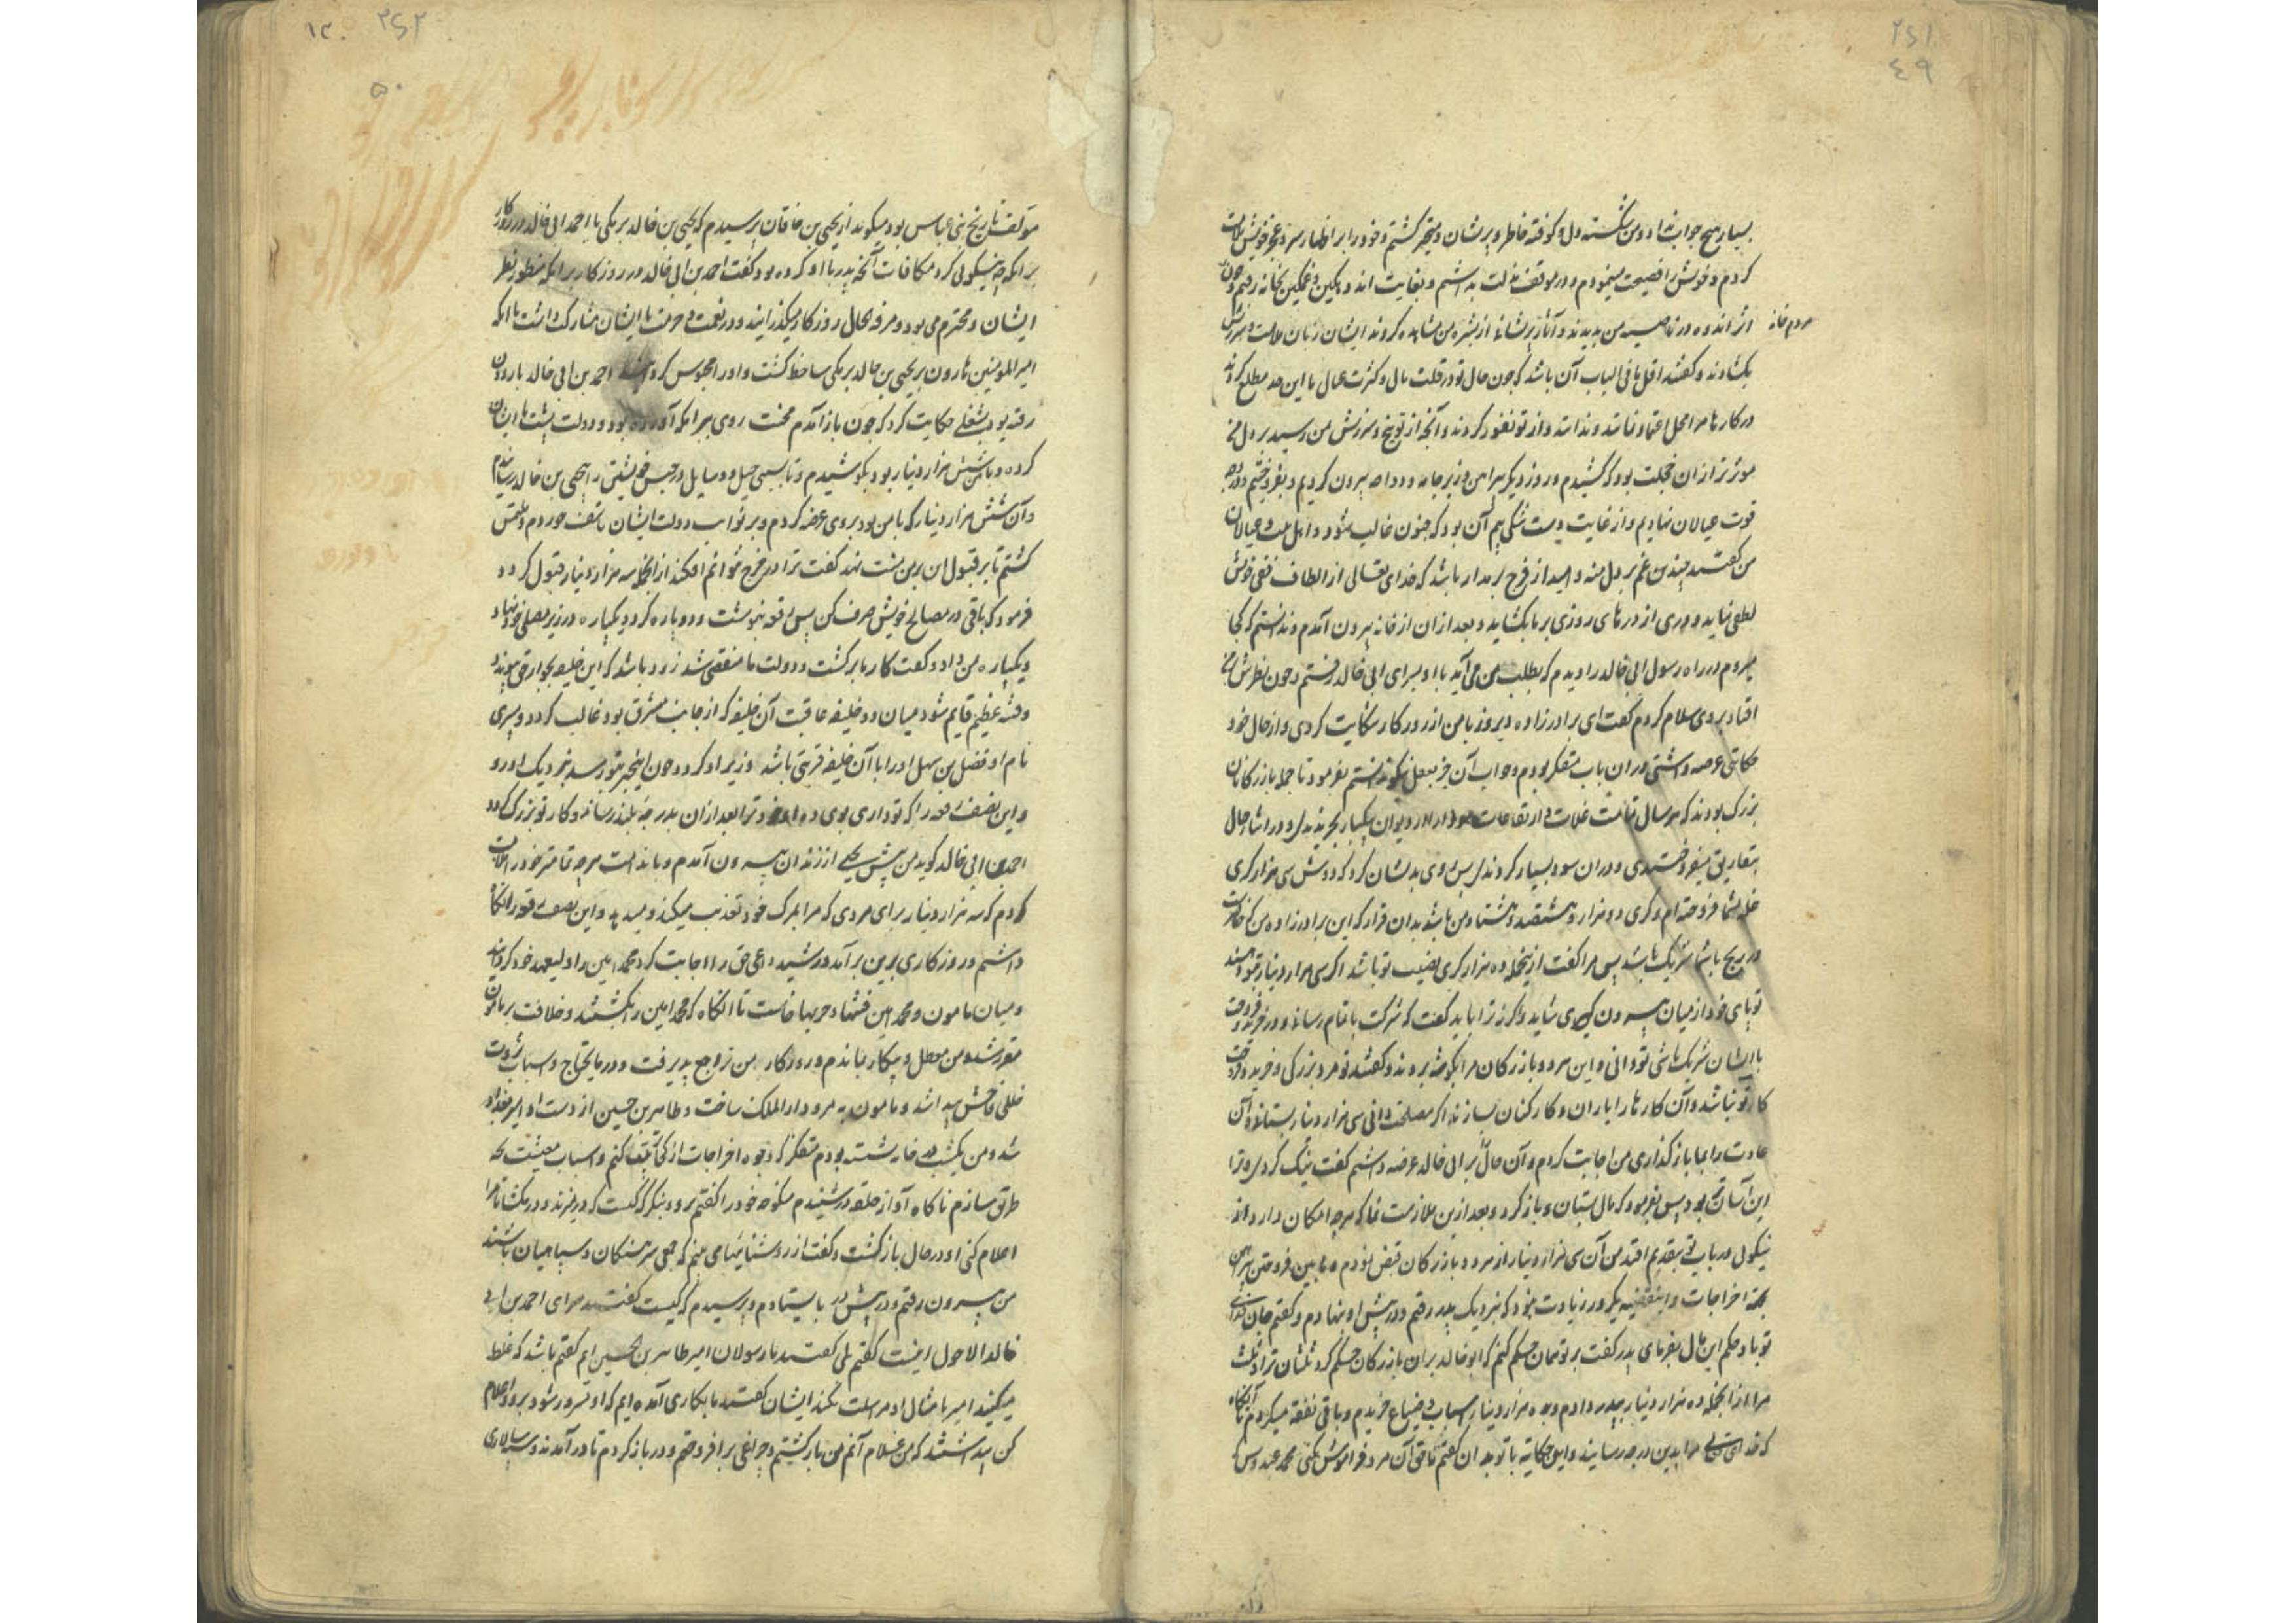 ۲۶۱
٤٩
بسیار هیچ جواب نداد و من شکسته دل و کوفته خاطر و پریشان و متحیر گشتم و خود را بر اظهار سر و عجز خویش ملامت
کردم و خویش را فضیحت مینمودم و در موقف مذلت بداشتم و بغایت اندوهگین و غمگین بخانه رفتم و چون
مردم خانه
اثر اندوه در ناصیه من بدیدند و آثار پریشانی از بشره من مشاهده کردند ایشان زبان ملامت و سرزنش
بگشادند و گفتند اقل ما فی الباب آن باشد که چون حال تو در قلت مال و کثرت عیال باین حد مطلع گردند
در کارها مرا محل اعتماد نباشد و ندانند و از تو نفور گردند و آنچه از توبیخ و سرزنش من رسید بر دل من
موثرتر از آن خجلت بود که کشیدم و روز دیگر پیراهن و زیر جامه و ردا بیرون کردیم و بفروختیم و در وجه
قوت عیالان نهادیم و از غایت دست تنگی بیم آن بود که جنون غالب شود و اهل بیت و عیالان
من گفتند چندین غم بر دل منه و امید از فرج بر مدار باشد که خدای تعالی از الطاف خفی خویش
لطفی نماید و دری از درهای روزی بر ما بگشاید و بعد از آن از خانه بیرون آمدم و ندانستم که کجا
میروم در راه رسول ابی خالد را دیدم که بطلب من می آید با او بسرای ابی خالد رفتم و چون نظرش بر من
افتاد بر وی سلام کردم گفت ای برادرزاده دیروز با من از روزگار شکایت کردی و از حال خود
حکایتی عرضه داشتی در آن باب متفکر بودم و جواب آن جز بفعل نتوانستم بفرمود تا جمله بازرگانان
بزرگ بودند که هر سال تمامت غلات و ارتفاعات از دیوان یکبار بخریدندی و در اثناء سال
بتفاریق میفروختندی و در آن سود بسیار کردندی پس روی بدیشان کرد که دوش سی هزار کری
غله بشما فروخته ام و کری دو هزار و هشتصد و هشتاد من باشد بدان قرار که این برادرزاده من
در ربح با شما شریک باشد پس مرا گفت از ینجمله ده هزار کری نصیب تو باشد اگر سی هزار دینار بتو دهند
تو پای خود از میان بیرون کشی می شاید و اگر نه ترا باید گفت که شرکت باتمام رسانی و در خرید و فروخت
با ایشان شریک باشی تو دانی و این هر دو بازرگان مرا بگوشه بردند و گفتند تو مرد بزرگی و خرید و فروخت
کار تو نباشد و آن کارها را یاران و کارکنان بسازند اگر مصلحت دانی سی هزار دینار بستانی و آن
عادت را بما بازگذاری من اجابت کردم و آن حال بر ابی خالد عرضه داشتم گفت نیک کردی و ترا
این آسانتر بود پس بفرمود که مال بستان و بازگرد و بعد ازین ملازمت نما که هر چه امکان دارد از
نیکوئی در باب تو بتقدیم افتد من آن سی هزار دینار از هر دو بازرگان قبض نمودم و ما بین فروختن پیراهن
بجهة اخراجات و این قضیه یکروز زیادت نبود که نزدیک پدر رفتم و در پیش او نهادم و گفتم جان فدای
تو باد حکم این مال بفرمای پدر گفت بر تو همان حکم کنم که ابو خالد بر آن بازرگان حکم کرد ثلثان ترا و ثلث
مرا از آنجمله ده هزار دینار بپدر دادم و بده هزار دینار اسباب و ضیاع خریدم و باقی نفقه میکردم تا آنگاه
که خدای تعالی مرا بدین درجه رسانید و این حکایت با تو بهر آن گفتم تا حق آن مرد فراموش نکنی محمد عبدوس که
۲۶۲
۱۲۰
۵۰
مولف تاریخ بنی عباس بود میگوید از یحیی بن خاقان پرسیدم که یحیی بن خالد برمکی با احمد ابی خالد در روزگار
برامکه چه نیکوئی کرد مکافات آنچه پدر با او کرده بود گفت احمد بن ابی خالد در روزگار برامکه منظور نظر
ایشان و محترم می بود و مرفه الحال روزگار میگذرانید و در نعمت و حرمت با ایشان مشارک داشت تا آنکه
امیر المؤمنین هارون بر یحیی بن خالد برمکی ساخط گشت و او را محبوس کرد احمد بن ابی خالد باردون
رفته بود بشغلی حکایت کرد که چون باز آمدم محنت روی ببرامکه آورده بود و دولت پشت بر ایشان
کرده و با من شش هزار دینار بود بکوشیدم و تا بسی حیل و وسایل در حبس خویشتن را بیحیی بن خالد رسانیدم
و آن شش هزار دینار که با من بود بر وی عرضه کردم و بر نواب دولت ایشان تاسف خوردم و ملتمس
گشتم تا بر قبول آن بر من منت نهد گفت ترا در حرج نتوانم افکند از آنجمله سه هزار دینار قبول کرد و
فرمود که باقی در مصالح خویش صرف کن پس رقعه بنوشت و دو پاره کرد و یکپاره در زیر مصلی خود نهاد
و یکپاره بمن داد و گفت کار ما برگشت و دولت ما منقضی شد زود باشد که این خلیفه بجوار حق پیوندد
و فتنه عظیم قایم شود میان دو خلیفه عاقبت آن خلیفه که از جانب مشرق بود غالب گردد و پسری
نام او فضل بن سهل او را با آن خلیفه قربتی باشد و وزیر او گردد چون اینخبر بتو رسد بنزدیک او رو
و این نصف رقعه را که تو داری بوی ده و ترا بعد از آن بدرجه بلند رساند و کار تو بزرگ گردد
احمد بن ابی خالد گوید من از پیش یحیی از زندان بیرون آمدم و باندامت هر چه تمامتر خود را ملامت
کردم که سه هزار دینار برای مردی که مرا بمرگ خود تعذیب میکند و میداد و این نصف رقعه را نگاه
داشتم و روزگاری برین برآمد و رشید داعی حق را اجابت کرد و محمد امین را ولیعهد خود گردانید
و میان مامون و محمد امین فتنها و حربها خاست تا آنگاه که محمد امین را بکشتند و خلافت بر مامون
مقرر شد و من معطل و بیکار بماندم و روزگار من تراجع پذیرفت و در ما یحتاج و اسباب ثروت
خللی فاحش پیدا شد و مامون به مرو دار الملک ساخت و طاهر بن حسین از دست او امیر بغداد
شد و من یکشب در خانه نشسته بودم متفکر که وجوه اخراجات از کجا بکف کنم و اسباب معیشت بچه
طریق سازم ناگاه آواز حلقه در شنیدم منکوحه خود را گفتم برو و بنگر که کیست که در میزند و در مگشا تا مرا
اعلام کنی او در حال بازگشت و گفت از روشنائیها می بینم که جمعی سرهنگان و سپاهیان باشند
من بیرون رفتم و در پیش در بایستادم و پرسیدم که کیست گفتند سرای احمد بن ابی
خالد الاحول اینست گفتم بلی گفتند ما رسولان امیر طاهر بن الحسین ایم گفتم باشد که غلط
میکنید امیر بامثال او مراسلت نکند ایشان گفتند ما بکاری آمده ایم که او مسرور شود برو و اعلام
کن پنداشتند که من غلام آنم من بازگشتم و چراغی برافروختم و در باز کردم تا در آمدند و سپهسالاری